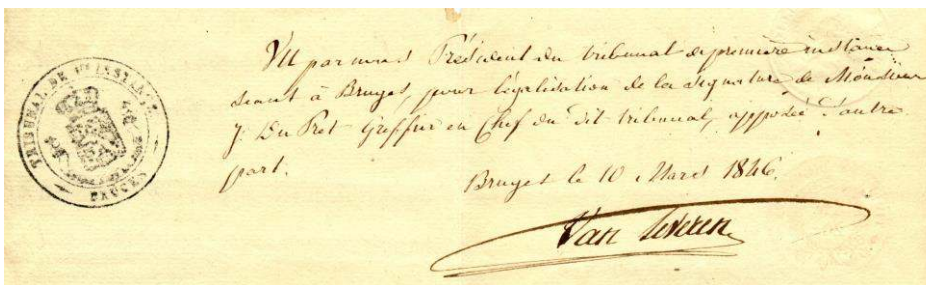 TRIBUNAL DE 1re INSTANCE
BRUGES
Vu par nous Président du tribunal de première instance
séant à Bruges, pour légalisation de la signature de Monsieur
J. Du Pret Greffier en Chef du dit tribunal, apposée d'autre
part.
Bruges le 10 Mars 1846.
Van Severen